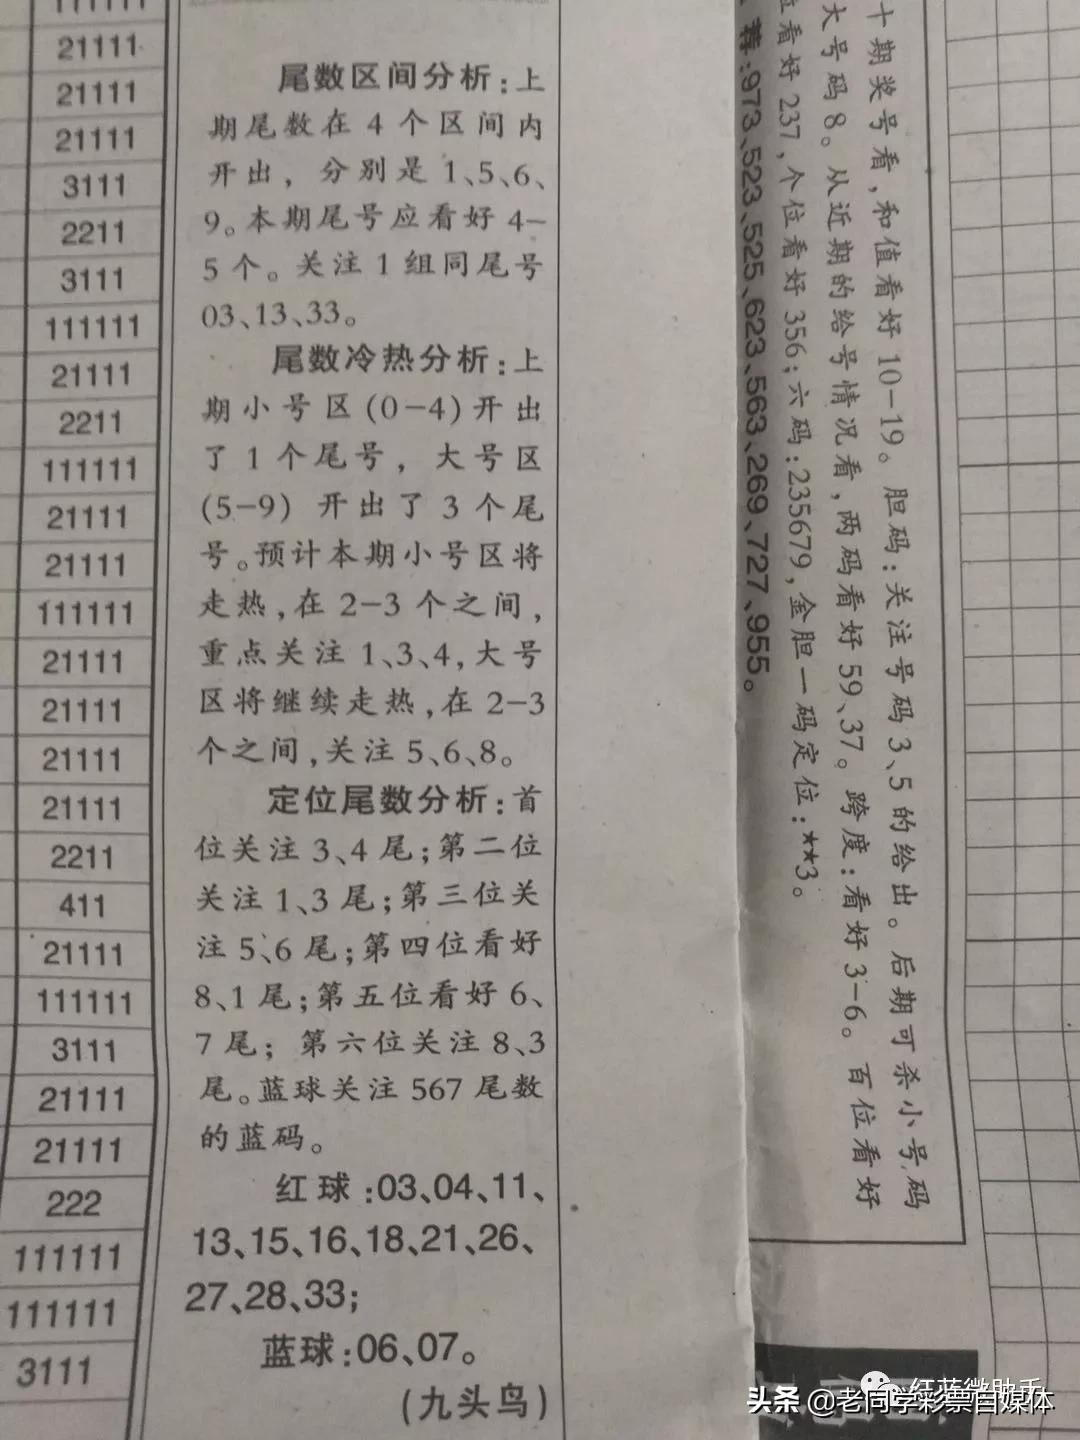 21111
21111
21111
3111
2211
3111
111111
21111
2211
111111
21111
21111
111111
21111
21111
21111
21111
2211
411
21111
111111
3111
21111
21111
222
111111
111111
3111
尾数区间分析:上
期尾数在4个区间内
开出，分别是1、5、6、
9。本期尾号应看好4-
5个。关注1组同尾号
03、13、33。
尾数冷热分析:上
期小号区(0-4)开出
了1个尾号，大号区
(5-9)开出了3个尾
号。预计本期小号区将
走热,在2-3个之间,
重点关注1、3、4,大号
区将继续走热,在2-3
个之间,关注5、6、8。
定位尾数分析:首
位关注3、4尾;第二位
关注1、3尾;第三位关
注5、6尾;第四位看好
8、1尾;第五位看好6、
7尾;第六位关注8、3
尾。蓝球关注567尾数
的蓝码。
红球:03、04、11、
13、15、16、18、21、26、
27、28、33;
蓝球:06、07。
(九头鸟)
十期奖号看,和值看好10-19。胆码:关注号码3、5的给出。后期可杀小号码
大号码8。从近期的给号情况看,两码看好59、37。跨度:看好3-6。百位看好
位看好237,个位看好356;六码:235679,金胆一码定位:**3。
荐:973、523、525、623、563、269、727、955。
红蓝微助手
头条 @老同学彩票自媒体